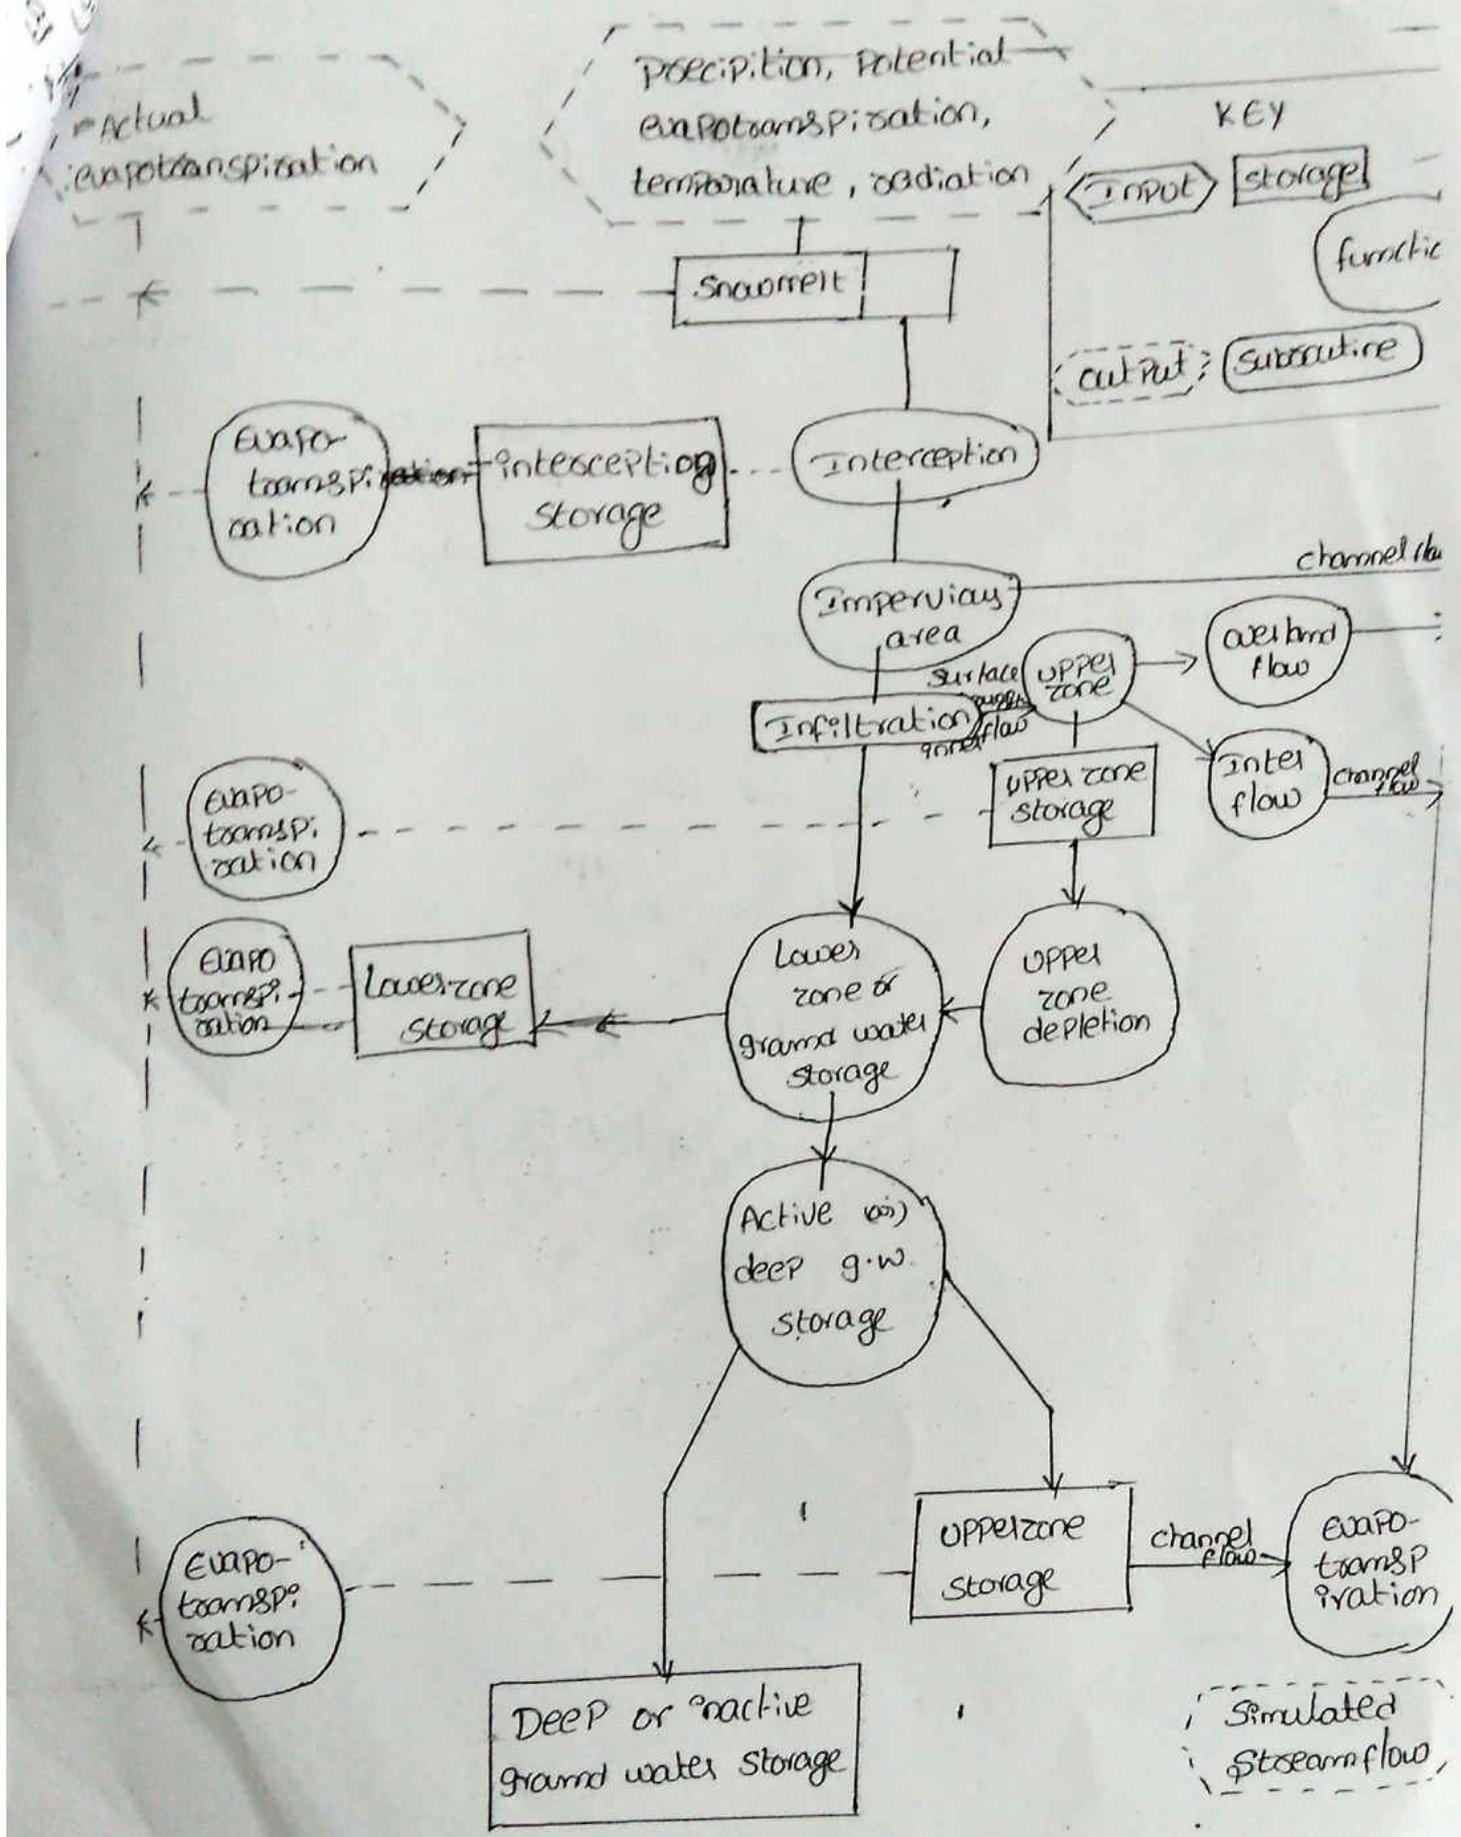 Actual
evapotranspiration
Precipition, Potential
evapotranspiration,
temporature, radiation
KEY
Input
storage
functio
output
Subroutine
Snowmelt
Evapo-
transpi
ration
interception
storage
Interception
Impervious
area
channel flow
Surface
inner flow
upper
zone
overland
flow
Infiltration
upper zone
storage
Inter
flow
channel
flow
Evapo-
transpi
ration
Evapo
transpi-
ration
Lowerzone
storage
Lower
zone or
ground water
storage
upper
zone
depletion
Active (or)
deep g.w.
storage
Evapo-
transpi
ration
upperzone
storage
channel
flow
Evapo-
transp
iration
Deep or inactive
ground water storage
Simulated
Streamflow